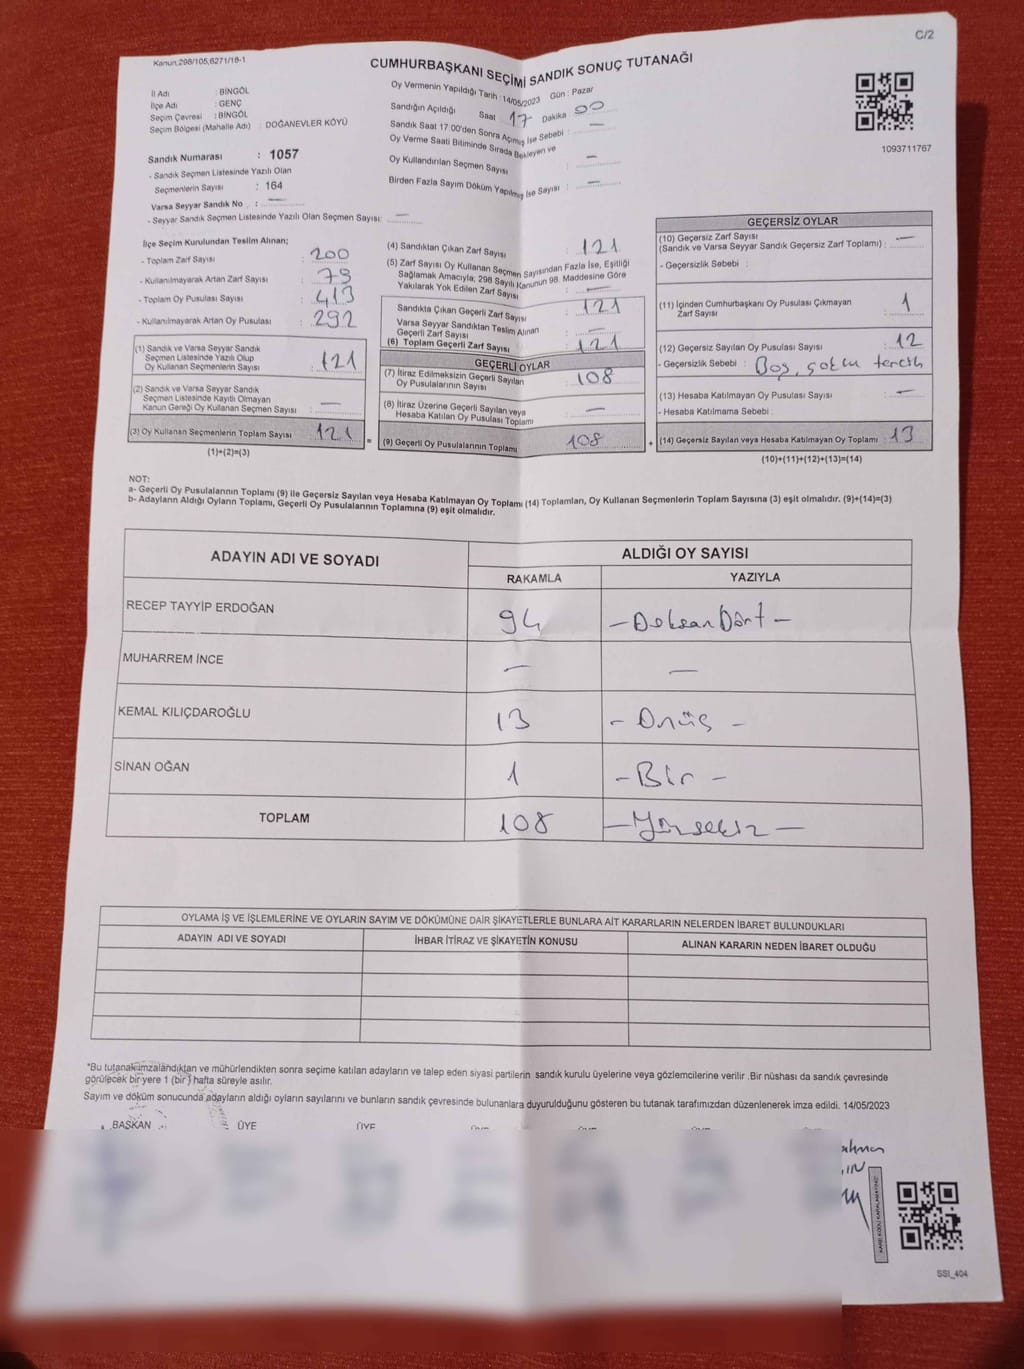 C/2
Kanun:298/105,6271/18-1
CUMHURBAŞKANI SEÇİMİ SANDIK SONUÇ TUTANAĞI
İl Adı : BİNGÖL
İlçe Adı : GENÇ
Seçim Çevresi : BİNGÖL
Seçim Bölgesi (Mahalle Adı) : DOĞANEVLER KÖYÜ
Sandık Numarası : 1057
- Sandık Seçmen Listesinde Yazılı Olan
Seçmenlerin Sayısı : 164
Varsa Seyyar Sandık No : —
- Seyyar Sandık Seçmen Listesinde Yazılı Olan Seçmen Sayısı: —
Oy Vermenin Yapıldığı Tarih : 14/05/2023 Gün : Pazar
Sandığın Açıldığı Saat : 17 Dakika : 00
Sandık Saat 17:00'den Sonra Açımış İse Sebebi : —
Oy Verme Saati Bitiminde Sırada Bekleyen ve
Oy Kullandırılan Seçmen Sayısı : —
Birden Fazla Sayım Döküm Yapılmış İse Sayısı : —
1093711767
İlçe Seçim Kurulundan Teslim Alınan;
- Toplam Zarf Sayısı : 200
- Kullanılmayarak Artan Zarf Sayısı : 79
- Toplam Oy Pusulası Sayısı : 413
- Kullanılmayarak Artan Oy Pusulası : 292
(1) Sandık ve Varsa Seyyar Sandık
Seçmen Listesinde Yazılı Olup
Oy Kullanan Seçmenlerin Sayısı : 121
(2) Sandık ve Varsa Seyyar Sandık
Seçmen Listesinde Kayıtlı Olmayan
Kanun Gereği Oy Kullanan Seçmen Sayısı : —
(3) Oy Kullanan Seçmenlerin Toplam Sayısı : 121
(1)+(2)=(3)
(4) Sandıktan Çıkan Zarf Sayısı : 121
(5) Zarf Sayısı Oy Kullanan Seçmen Sayısından Fazla İse, Eşitliği
Sağlamak Amacıyla; 298 Sayılı Kanunun 98. Maddesine Göre
Yakılarak Yok Edilen Zarf Sayısı : —
Sandıkta Çıkan Geçerli Zarf Sayısı : 121
Varsa Seyyar Sandıktan Teslim Alınan
Geçerli Zarf Sayısı : —
(6) Toplam Geçerli Zarf Sayısı : 121
GEÇERLİ OYLAR
(7) İtiraz Edilmeksizin Geçerli Sayılan
Oy Pusulalarının Sayısı : 108
(8) İtiraz Üzerine Geçerli Sayılan veya
Hesaba Katılan Oy Pusulası Toplamı : —
= (9) Geçerli Oy Pusulalarının Toplamı : 108
GEÇERSİZ OYLAR
(10) Geçersiz Zarf Sayısı
(Sandık ve Varsa Seyyar Sandık Geçersiz Zarf Toplamı) : —
- Geçersizlik Sebebi :
(11) İçinden Cumhurbaşkanı Oy Pusulası Çıkmayan
Zarf Sayısı : 1
(12) Geçersiz Sayılan Oy Pusulası Sayısı : 12
- Geçersizlik Sebebi : Boş, çoklu tercih
(13) Hesaba Katılmayan Oy Pusulası Sayısı : —
- Hesaba Katılmama Sebebi :
+ (14) Geçersiz Sayılan veya Hesaba Katılmayan Oy Toplamı : 13
(10)+(11)+(12)+(13)=(14)
NOT:
a- Geçerli Oy Pusulalarının Toplamı (9) ile Geçersiz Sayılan veya Hesaba Katılmayan Oy Toplamı (14) Toplamları, Oy Kullanan Seçmenlerin Toplam Sayısına (3) eşit olmalıdır. (9)+(14)=(3)
b- Adayların Aldığı Oyların Toplamı, Geçerli Oy Pusulalarının Toplamına (9) eşit olmalıdır.
ADAYIN ADI VE SOYADI ALDIĞI OY SAYISI
RAKAMLA YAZIYLA
RECEP TAYYİP ERDOĞAN 94 – Doksan Dört –
MUHARREM İNCE — —
KEMAL KILIÇDAROĞLU 13 – Onüç –
SİNAN OĞAN 1 – Bir –
TOPLAM 108 – Yüzsekiz –
OYLAMA İŞ VE İŞLEMLERİNE VE OYLARIN SAYIM VE DÖKÜMÜNE DAİR ŞİKAYETLERLE BUNLARA AİT KARARLARIN NELERDEN İBARET BULUNDUKLARI
ADAYIN ADI VE SOYADI İHBAR İTİRAZ VE ŞİKAYETİN KONUSU ALINAN KARARIN NEDEN İBARET OLDUĞU
*Bu tutanak imzalandıktan ve mühürlendikten sonra seçime katılan adayların ve talep eden siyasi partilerin sandık kurulu üyelerine veya gözlemcilerine verilir .Bir nüshası da sandık çevresinde
görülecek bir yere 1 (bir) hafta süreyle asılır.
Sayım ve döküm sonucunda adayların aldığı oyların sayılarını ve bunların sandık çevresinde bulunanlara duyurulduğunu gösteren bu tutanak tarafımızdan düzenlenerek imza edildi. 14/05/2023
BAŞKAN ÜYE ÜYE
SSI_404